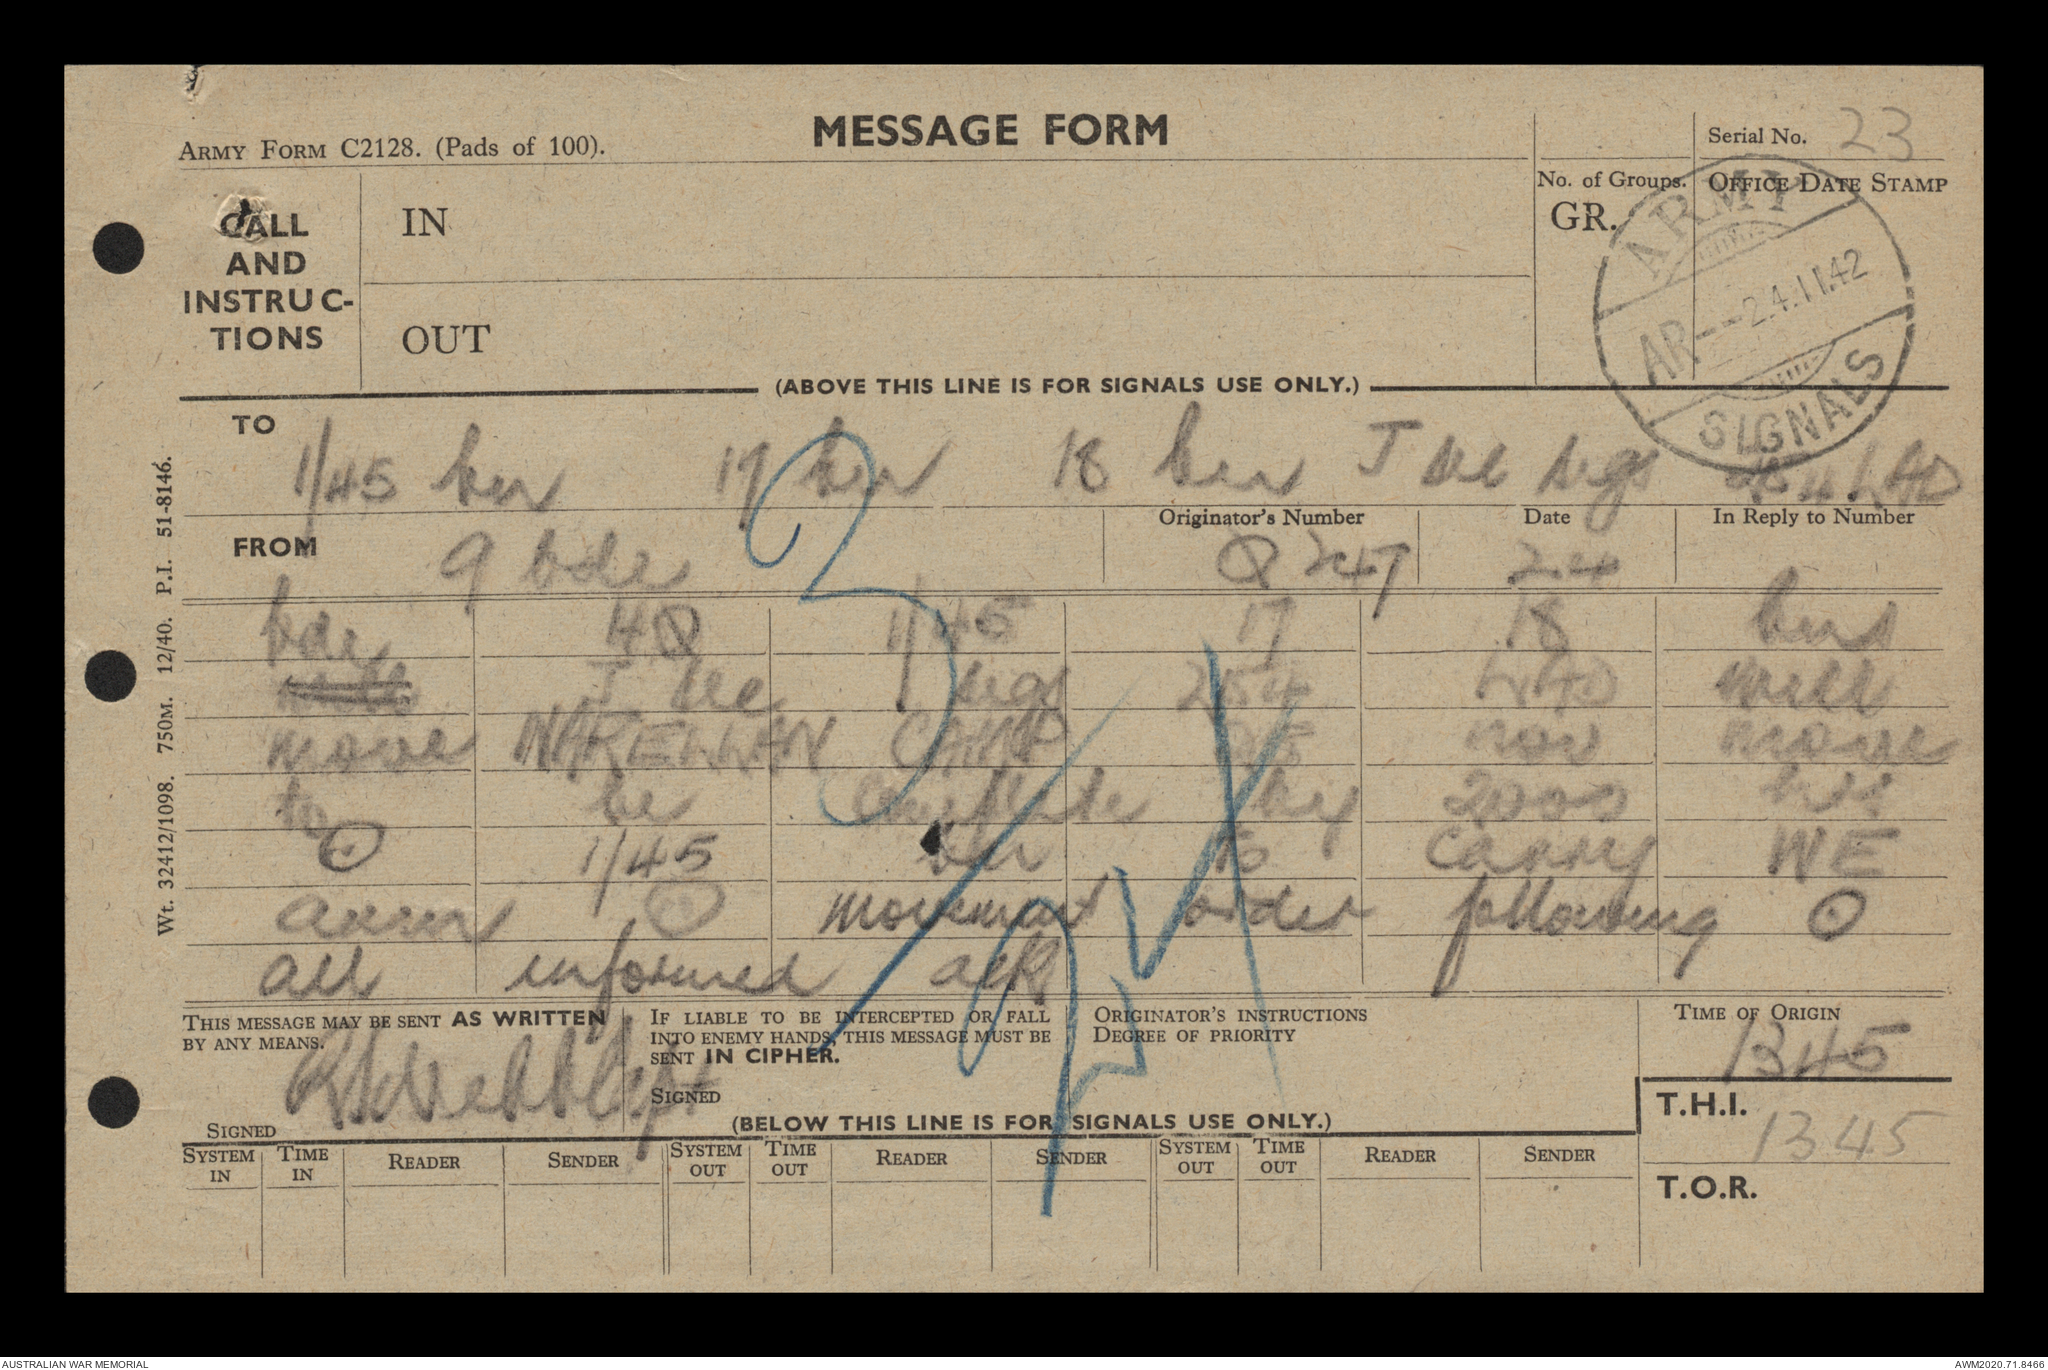 MESSAGE FORM
ARMY FORM C2128. (Pads of 100).
Serial No. 23
CALL AND INSTRUC-TIONS
IN
OUT
No. of Groups.
GR.
OFFICE DATE STAMP
ARMY
AR--24.11.42
SIGNALS
(ABOVE THIS LINE IS FOR SIGNALS USE ONLY.)
TO
1/45 bn 17 bn 18 bn J sec sigs LAD
FROM 9 bde
Originator's Number Q247
Date 24
In Reply to Number
bde HQ 1/45 17 18 bns
J sec sigs 254 LAD will
move NARELLAN CAMP 28 nov move
to be complete by 2000 hrs
⊙ 1/45 bn to carry WE
ammn ⊙ movement order following ⊙
all informed ack
3
24
Wt. 32412/1098. 750M. 12/40. P.I. 51-8146.
THIS MESSAGE MAY BE SENT AS WRITTEN
BY ANY MEANS.
SIGNED
IF LIABLE TO BE INTERCEPTED OR FALL
INTO ENEMY HANDS, THIS MESSAGE MUST BE
SENT IN CIPHER.
SIGNED
ORIGINATOR'S INSTRUCTIONS
DEGREE OF PRIORITY
TIME OF ORIGIN
1345
T.H.I.
1345
T.O.R.
(BELOW THIS LINE IS FOR SIGNALS USE ONLY.)
SYSTEM IN TIME IN READER SENDER SYSTEM OUT TIME OUT READER SENDER SYSTEM OUT TIME OUT READER SENDER
AUSTRALIAN WAR MEMORIAL
AWM2020.71.8466